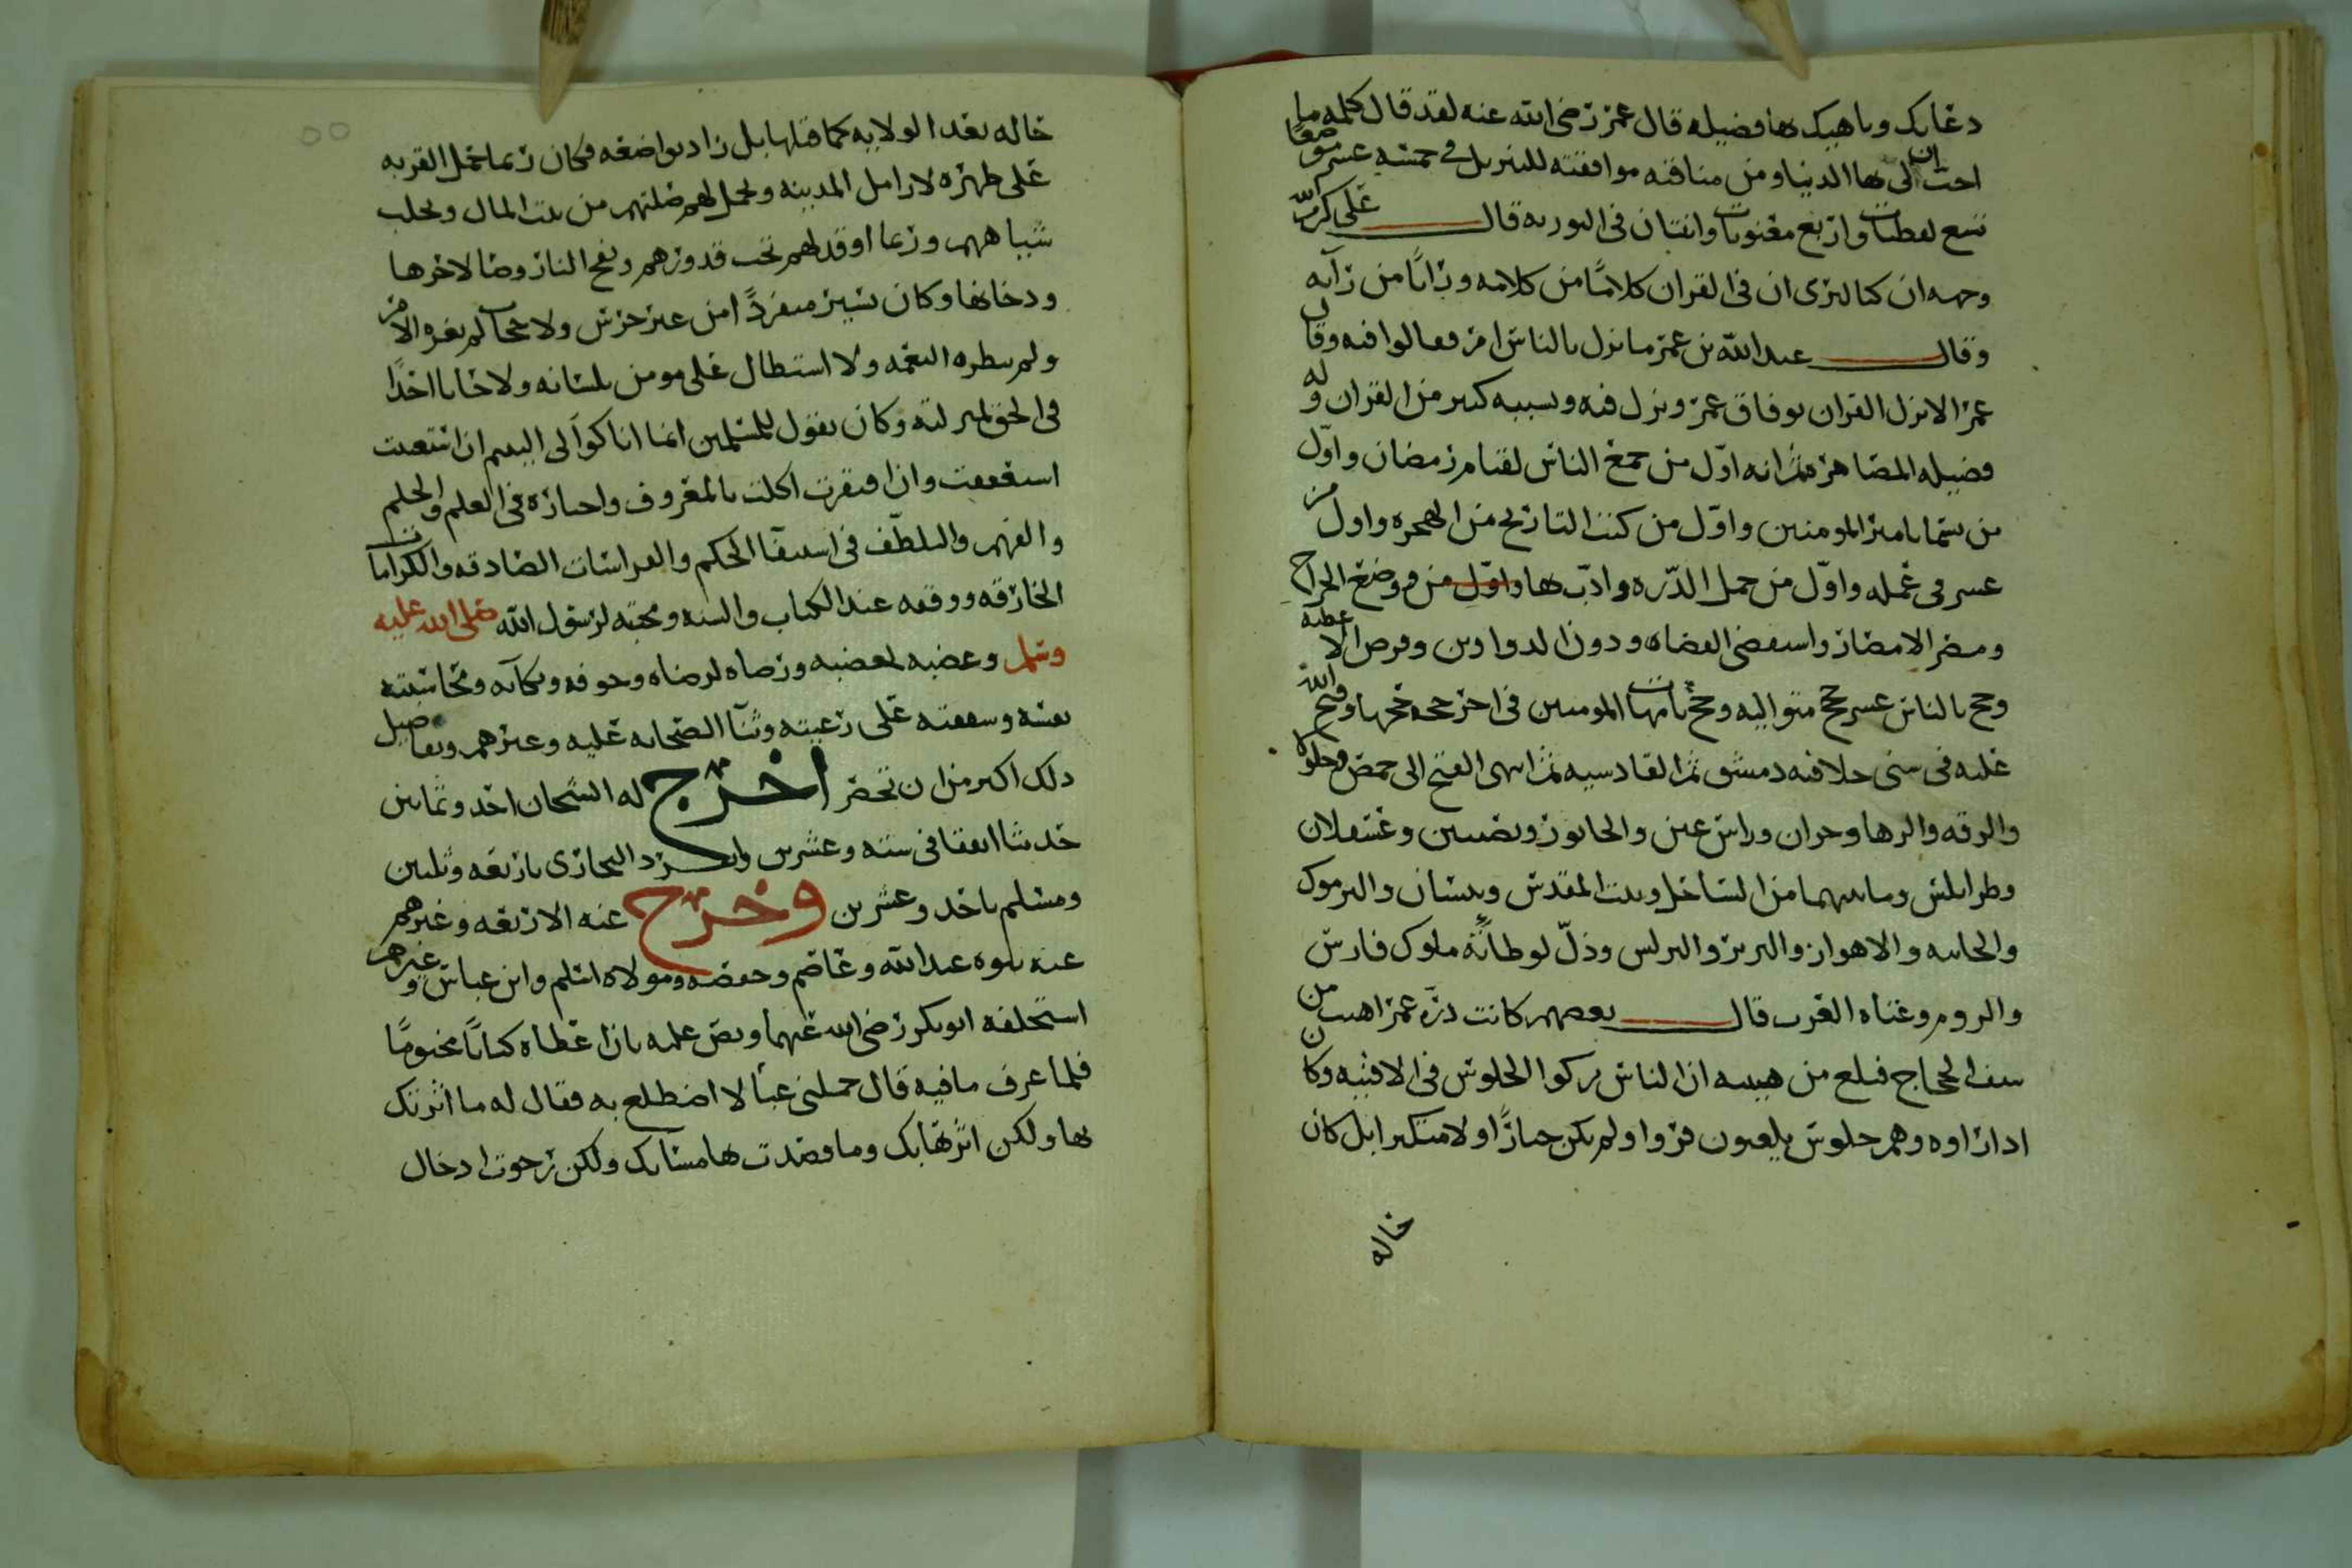 دعايك وناهيك بها فضيله قال عمر رضي الله عنه لقد قال كلمه ما
احب ان لي بها الدنيا ومن مناقبه موافقته للتنزيل في خمسه عشر موضعا
تسع لفظيات واربع معنويات واثنتان في التوريه قال علي كرم الله
وجهه ان كنا لنرى ان في القران كلاما من كلامه ورايا من رآيه
وقال عبد الله بن عمر ما نزل بالناس امر فقالوا فيه وقال
عمر الا نزل القران بوفاق عمر ونزل فيه وبسببه كثير من القران وله
فضيله المصاهره ثم انه اول من جمع الناس لقيام رمضان واول
من سمي بامير المومنين واول من كتب التاريخ من الهجره واول من
عسر في عمله واول من حمل الدره وادب بها واول من وضع الخراج
ومصر الامصار واستقضى القضاه ودون الدواوين وفرض الاعطيه
وحج بالناس عشر حجج متواليه وحج بامهات المومنين في اخر حجه حجها وفتح الله
عليه في سني خلافته دمشق ثم القادسيه ثم انتهى الفتح الى حمص وحلولا
والرقه والرها وحران وراس عين والخابور ونصيبين وعسقلان
وطرابلس وما يليهما من الساحل وبيت المقدس وبيسان واليرموك
والجابيه والاهواز والبربر والبرلس وذل لوطاته ملوك فارس
والروم وعتاه العرب قال بعضهم كانت دره عمر اهيب من
سيف الحجاج فبلغ من هيبته ان الناس تركوا الجلوس في الافنيه وكان
اذا راوه وهم جلوس يلعبون فروا ولم يكن جبارا ولا متكبرا بل كان
حاله
حاله بعد الولايه كما قبلها بل زاد تواضعه فكان ربما حمل القربه
على ظهره لارامل المدينه ويحمل لهم صلتهم من بيت المال ويحلب
شياههم وربما اوقد لهم تحت قدورهم ونفخ النار وصالا لاحرها
ودخانها وكان يسير منفردا من غير حرس ولا حجاب لم يغره الامر
ولم تبطره النعمه ولا استطال على مومن بلسانه ولا حابا احدا
في الحق لمنزلته وكان يقول للمسلمين انما انا كوالي اليتيم ان استغنيت
استعففت وان افتقرت اكلت بالمعروف واخباره في العلم والحلم
والفهم والتلطف في استيفا الحكم والفراسات الصادقه والكرامات
الخارقه ووقفه عند الكتاب والسنه ومحبته لرسول الله صلى الله عليه
وسلم وغضبه لغضبه ورضاه لرضاه وخوفه وبكآئه ومحاسبته
نفسه وشفقته على رعيته وثنآ الصحابه عليه وغيرهم وتفاصيل
ذلك اكثر من ان تحصر اخرج له الشيخان احد وثمانين
حديثا اتفقا في سته وعشرين وانفرد البخاري باربعه وثلثين
ومسلم باحد وعشرين وخرج عنه الاربعه وغيرهم
عنه بنوه عبد الله وعاصم وحفصه ومولاه اسلم وابن عباس وغيرهم
استخلفه ابو بكر رضي الله عنهما ونص عليه بان اعطاه كتابا مختوما
فلما عرف ما فيه قال حملني عبئا لا اضطلع به فقال له ما اثرتك
بها ولكن اثرتها بك وما قصدت بها مسآتك ولكن رجوت ادخال